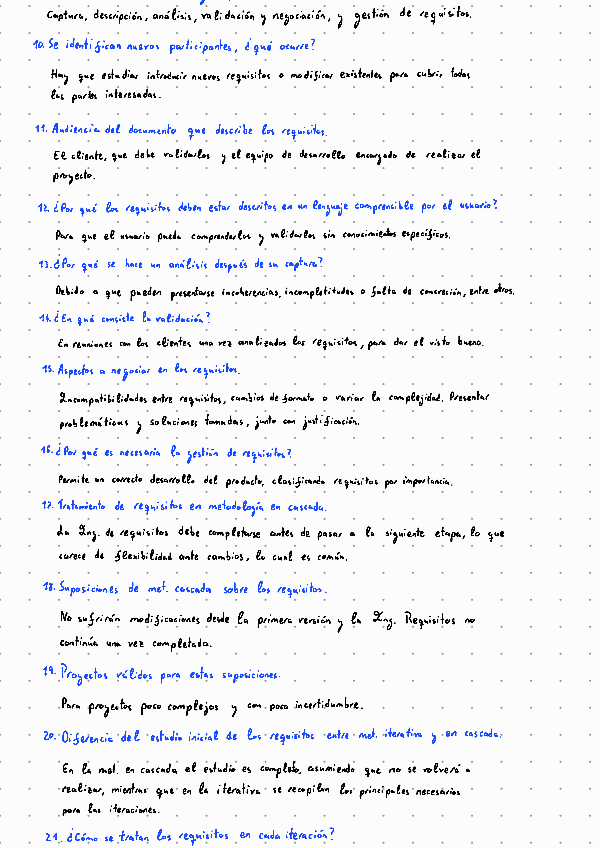 Captura, descripción, análisis, validación y negociación, y gestión de requisitos.
10. Se identifican nuevos participantes, ¿qué ocurre?
Hay que estudiar introducir nuevos requisitos o modificar existentes para cubrir todas
las partes interesadas.
11. Audiencia del documento que describe los requisitos.
El cliente, que debe validarlos y el equipo de desarrollo encargado de realizar el
proyecto.
12. ¿Por qué los requisitos deben estar descritos en un lenguaje comprencible por el usuario?
Para que el usuario pueda comprenderlos y validarlos sin conocimientos específicos.
13. ¿Por qué se hace un análisis después de su captura?
Debido a que pueden presentarse incoherencias, incompletitudes o falta de concreción, entre otros.
14. ¿En qué consiste la validación?
En reuniones con los clientes una vez analizados los requisitos, para dar el visto bueno.
15. Aspectos a negociar en los requisitos.
Incompatibilidades entre requisitos, cambios de formato o variar la complejidad. Presentar
problemáticas y soluciones tomadas, junto con justificación.
16. ¿Por qué es necesaria la gestión de requisitos?
Permite un correcto desarrollo del producto, clasificando requisitos por importancia.
17. Tratamiento de requisitos en metodología en cascada.
La Ing. de requisitos debe completarse antes de pasar a la siguiente etapa, lo que
carece de flexibilidad ante cambios, lo cual es común.
18. Suposiciones de met. cascada sobre los requisitos.
No sufrirán modificaciones desde la primera versión y la Ing. Requisitos no
continúa una vez completada.
19. Proyectos válidos para estas suposiciones.
Para proyectos poco complejos y con poca incertidumbre.
20. Diferencia del estudio inicial de los requisitos entre met. iterativa y en cascada.
En la met. en cascada el estudio es completo, asumiendo que no se volverá a
realizar, mientras que en la iterativa se recopilan los principales necesarios
para las iteraciones.
21. ¿Cómo se tratan los requisitos en cada iteración?